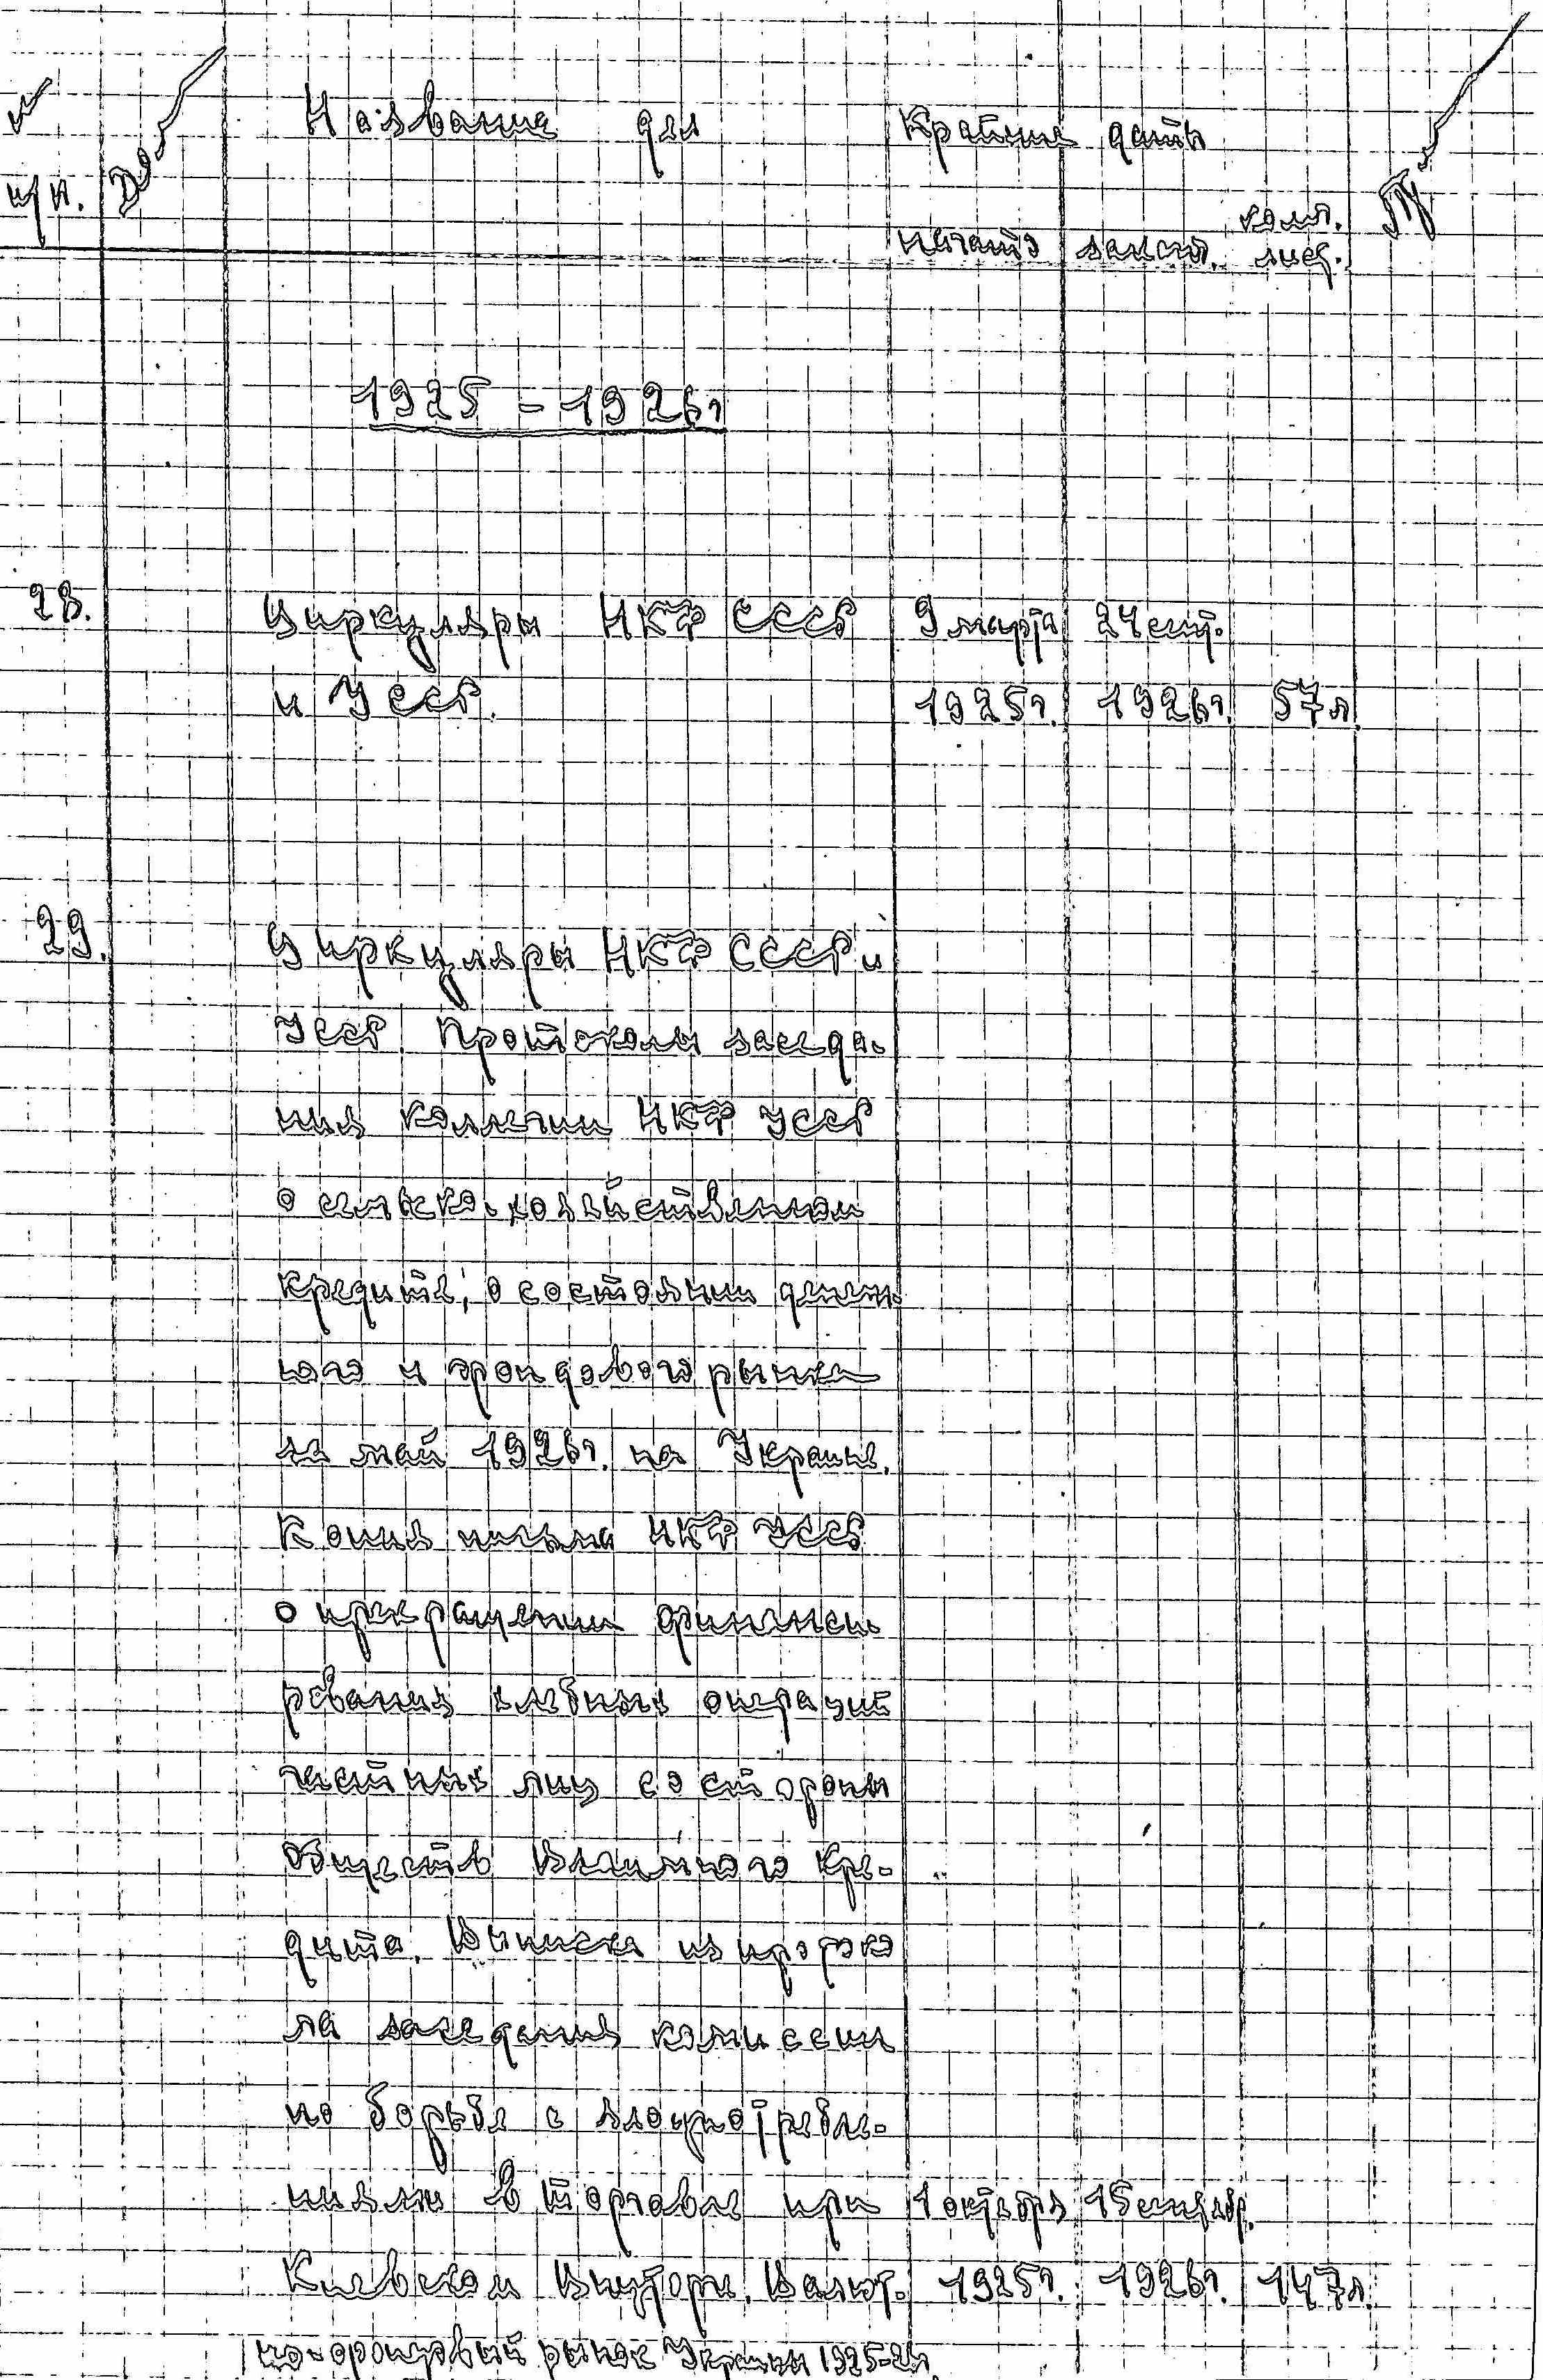 № Название дел Крайние даты
п/п. начато законч. колич. лис.
1925 – 1926г
28. Циркуляры НКФ СССР 9 марта 24 сент.
и УССР. 1925г. 1926г. 57л.
29. Циркуляры НКФ СССР и
УССР. Протоколы заседа-
ния коллегии НКФ УССР
о сельско-хозяйственном
кредите, о состоянии денеж-
ного и фондового рынка
за май 1926г. на Украине.
Копия письма НКФ УССР
о прекращении финанси-
рования хлебных операций
частных лиц со стороны
Обществ Взаимного Кре-
дита. Выписка из протоко
ла заседания комиссии
по борьбе с злоупотребле-
ниями в торговле при 1 октября 15 сентябр.
Киевском Внуторге. Валют- 1925г. 1926г. 147л.
но-фондовый рынок Украины 1925-26г.